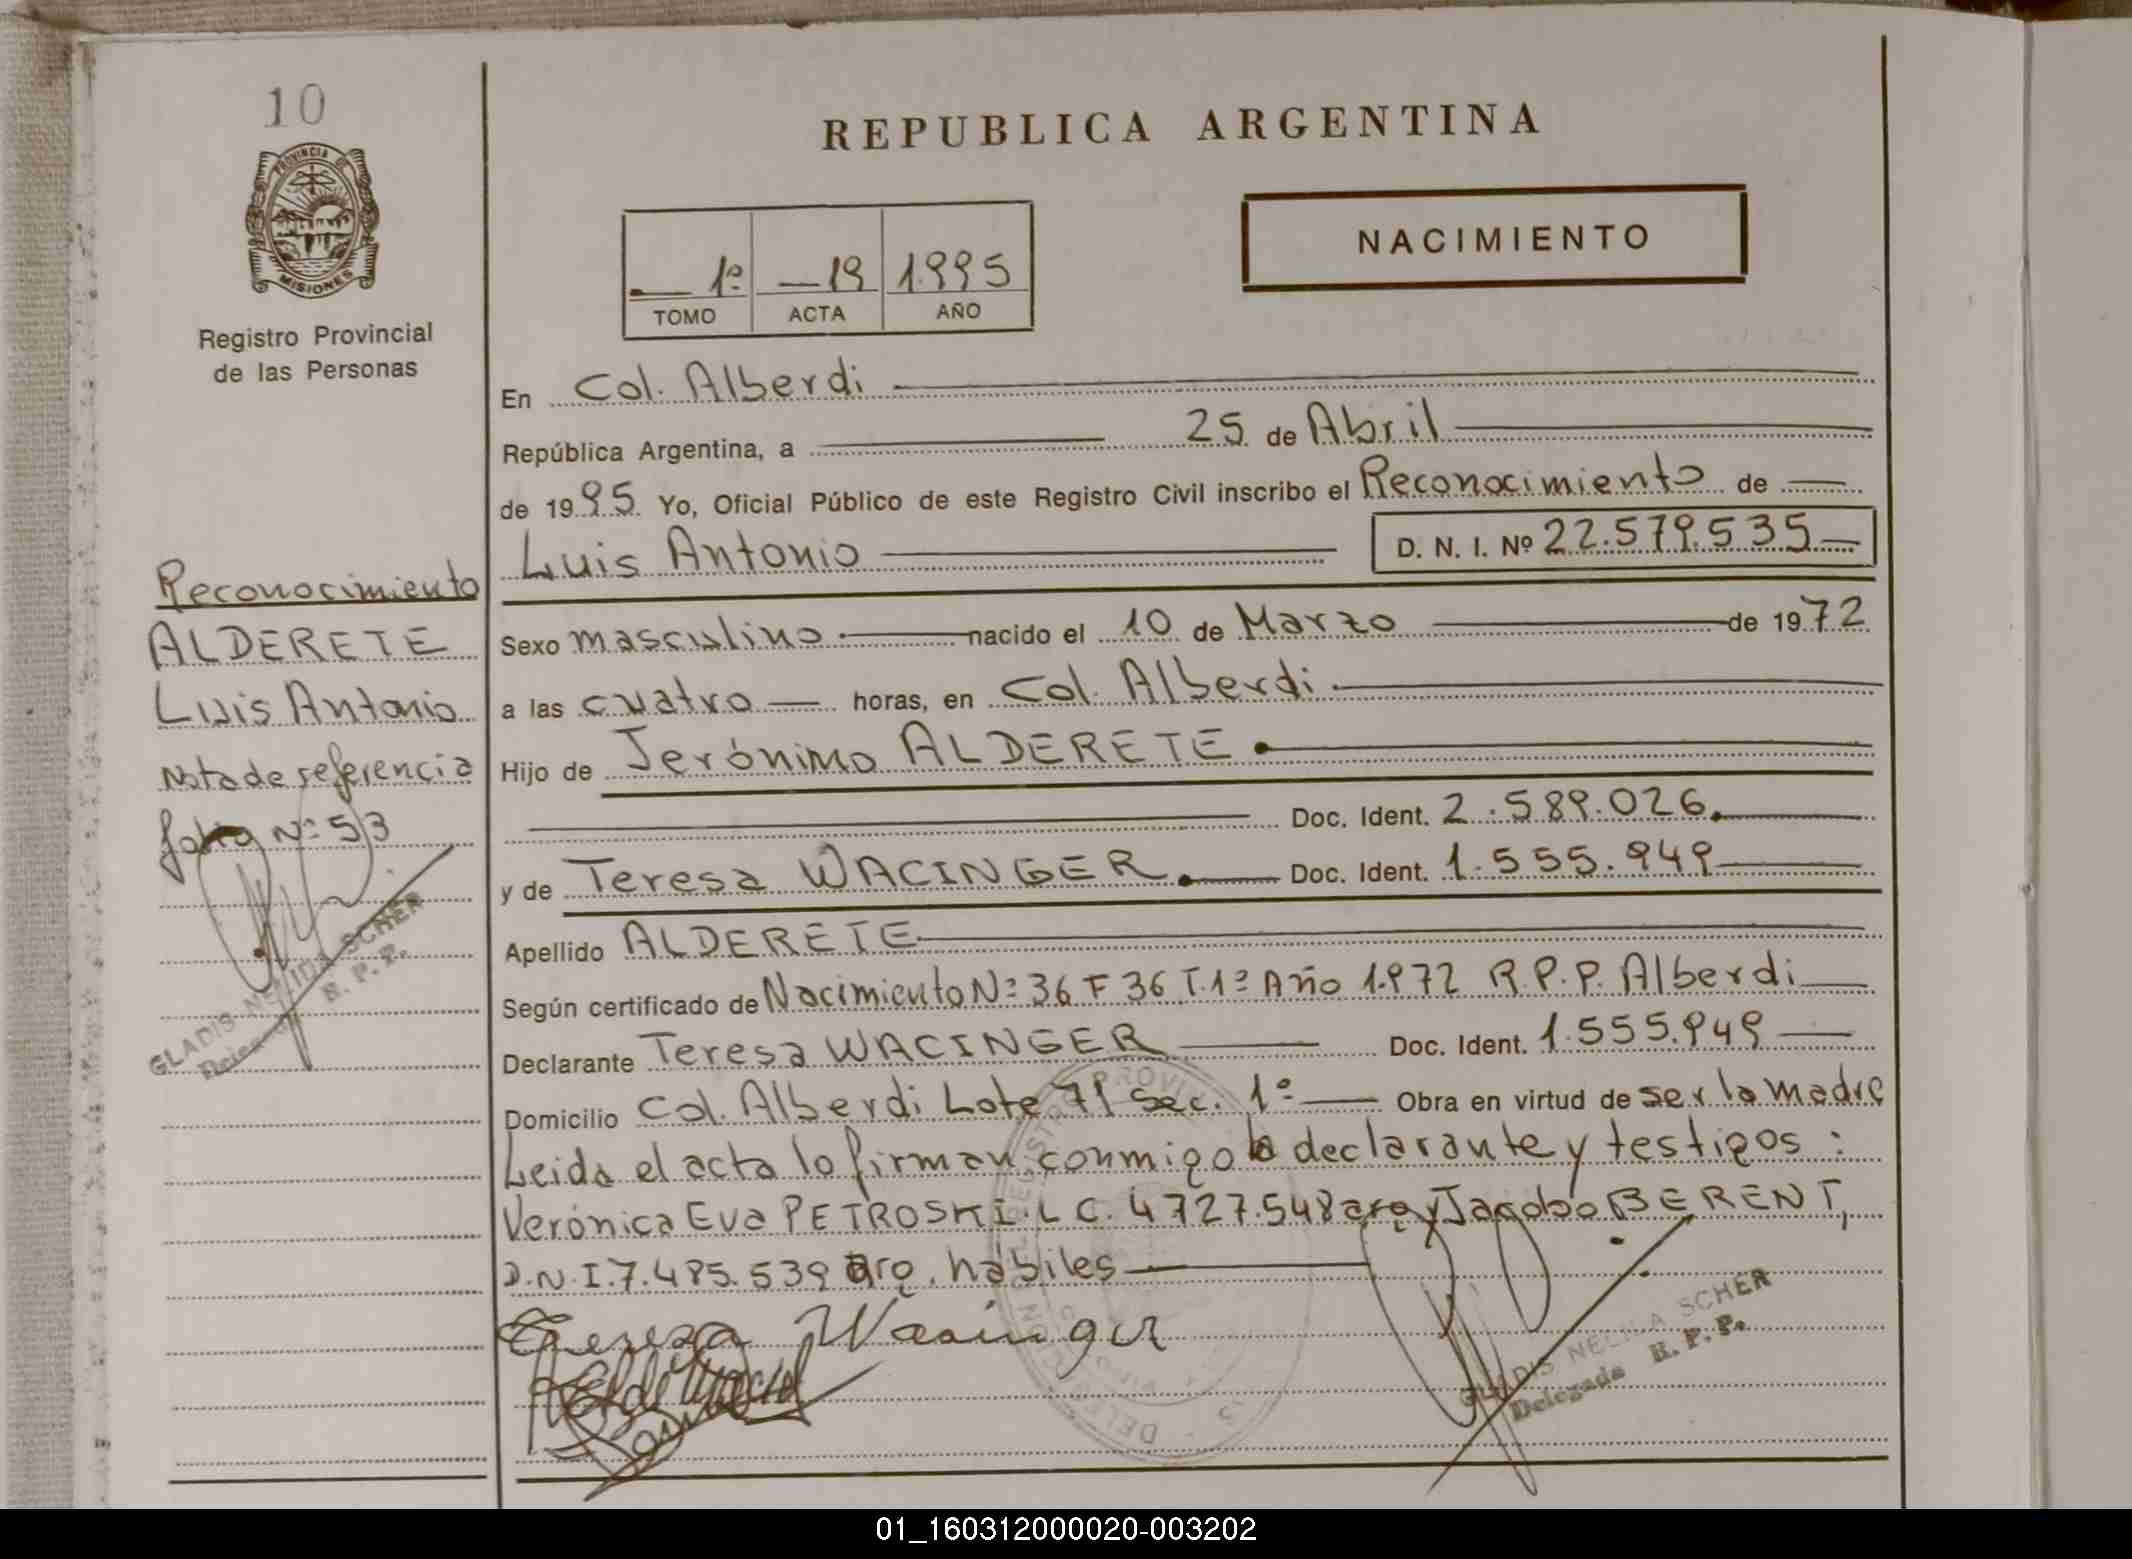 10
PROVINCIA DE
MISIONES
Registro Provincial
de las Personas
REPUBLICA ARGENTINA
NACIMIENTO
1º 19 1.995
TOMO ACTA AÑO
En Col. Alberdi
República Argentina, a 25 de Abril
de 1995 Yo, Oficial Público de este Registro Civil inscribo el Reconocimiento de
Luis Antonio D. N. I. Nº 22.579.535
Sexo masculino nacido el 10 de Marzo de 1972
a las cuatro horas, en Col. Alberdi
Hijo de Jerónimo ALDERETE
Doc. Ident. 2.589.026
y de Teresa WACINGER Doc. Ident. 1.555.949
Apellido ALDERETE
Según certificado de Nacimiento Nº 36 F 36 T.1º Año 1.972 R.P.P. Alberdi
Declarante Teresa WACINGER Doc. Ident. 1.555.949
Domicilio Col. Alberdi Lote 71 Sec. 1º Obra en virtud de ser la madre
Leida el acta lo firman conmigo la declarante y testigos:
Verónica Eva PETROSKI L C. 4 727.548 arg y Jacobo BERENT,
D.N.I. 7.485.539 arg. hábiles
Reconocimiento
ALDERETE
Luis Antonio
Nota de referencia
folio Nº 53
GLADIS NELIDA SCHER
Delegada R. P. P.
GLADIS NELIDA SCHER
Delegada R. P. P.
01_160312000020-003202